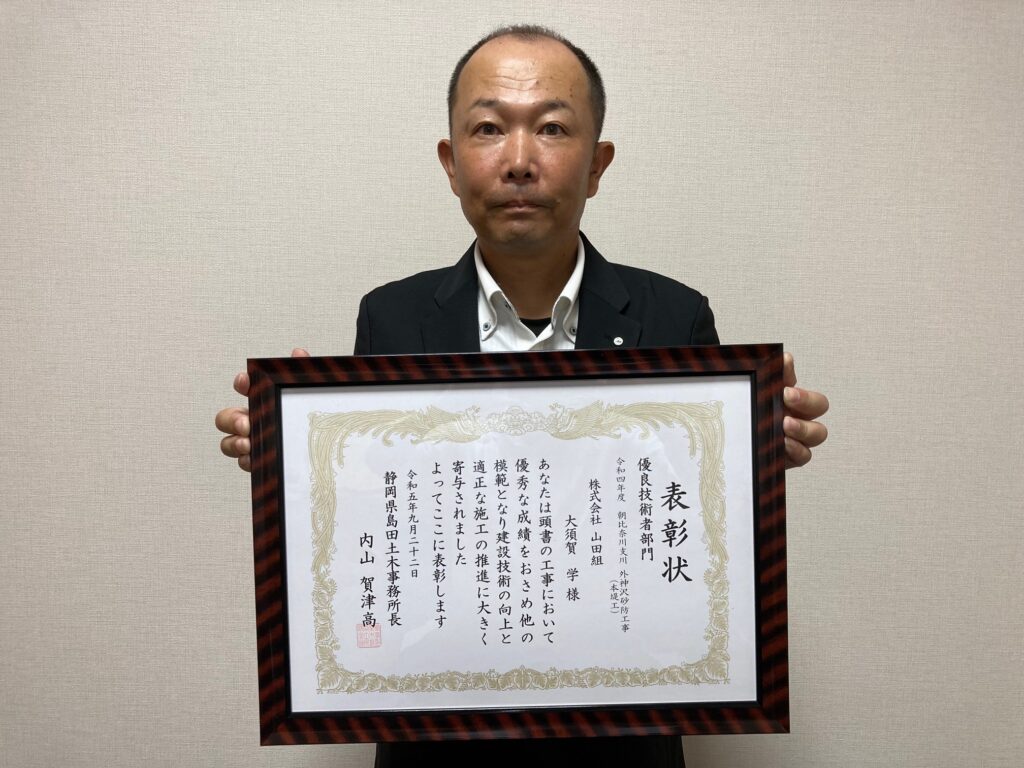 表彰状
優良技術者部門
令和四年度 朝比奈川支川 外神沢砂防工事
(本堤工)
株式会社 山田組
大須賀 学 様
あなたは頭書の工事において
優秀な成績をおさめ他の
模範となり建設技術の向上と
適正な施工の推進に大きく
寄与されました
よってここに表彰します
令和五年九月二十二日
静岡県島田土木事務所長
内山 賀津高